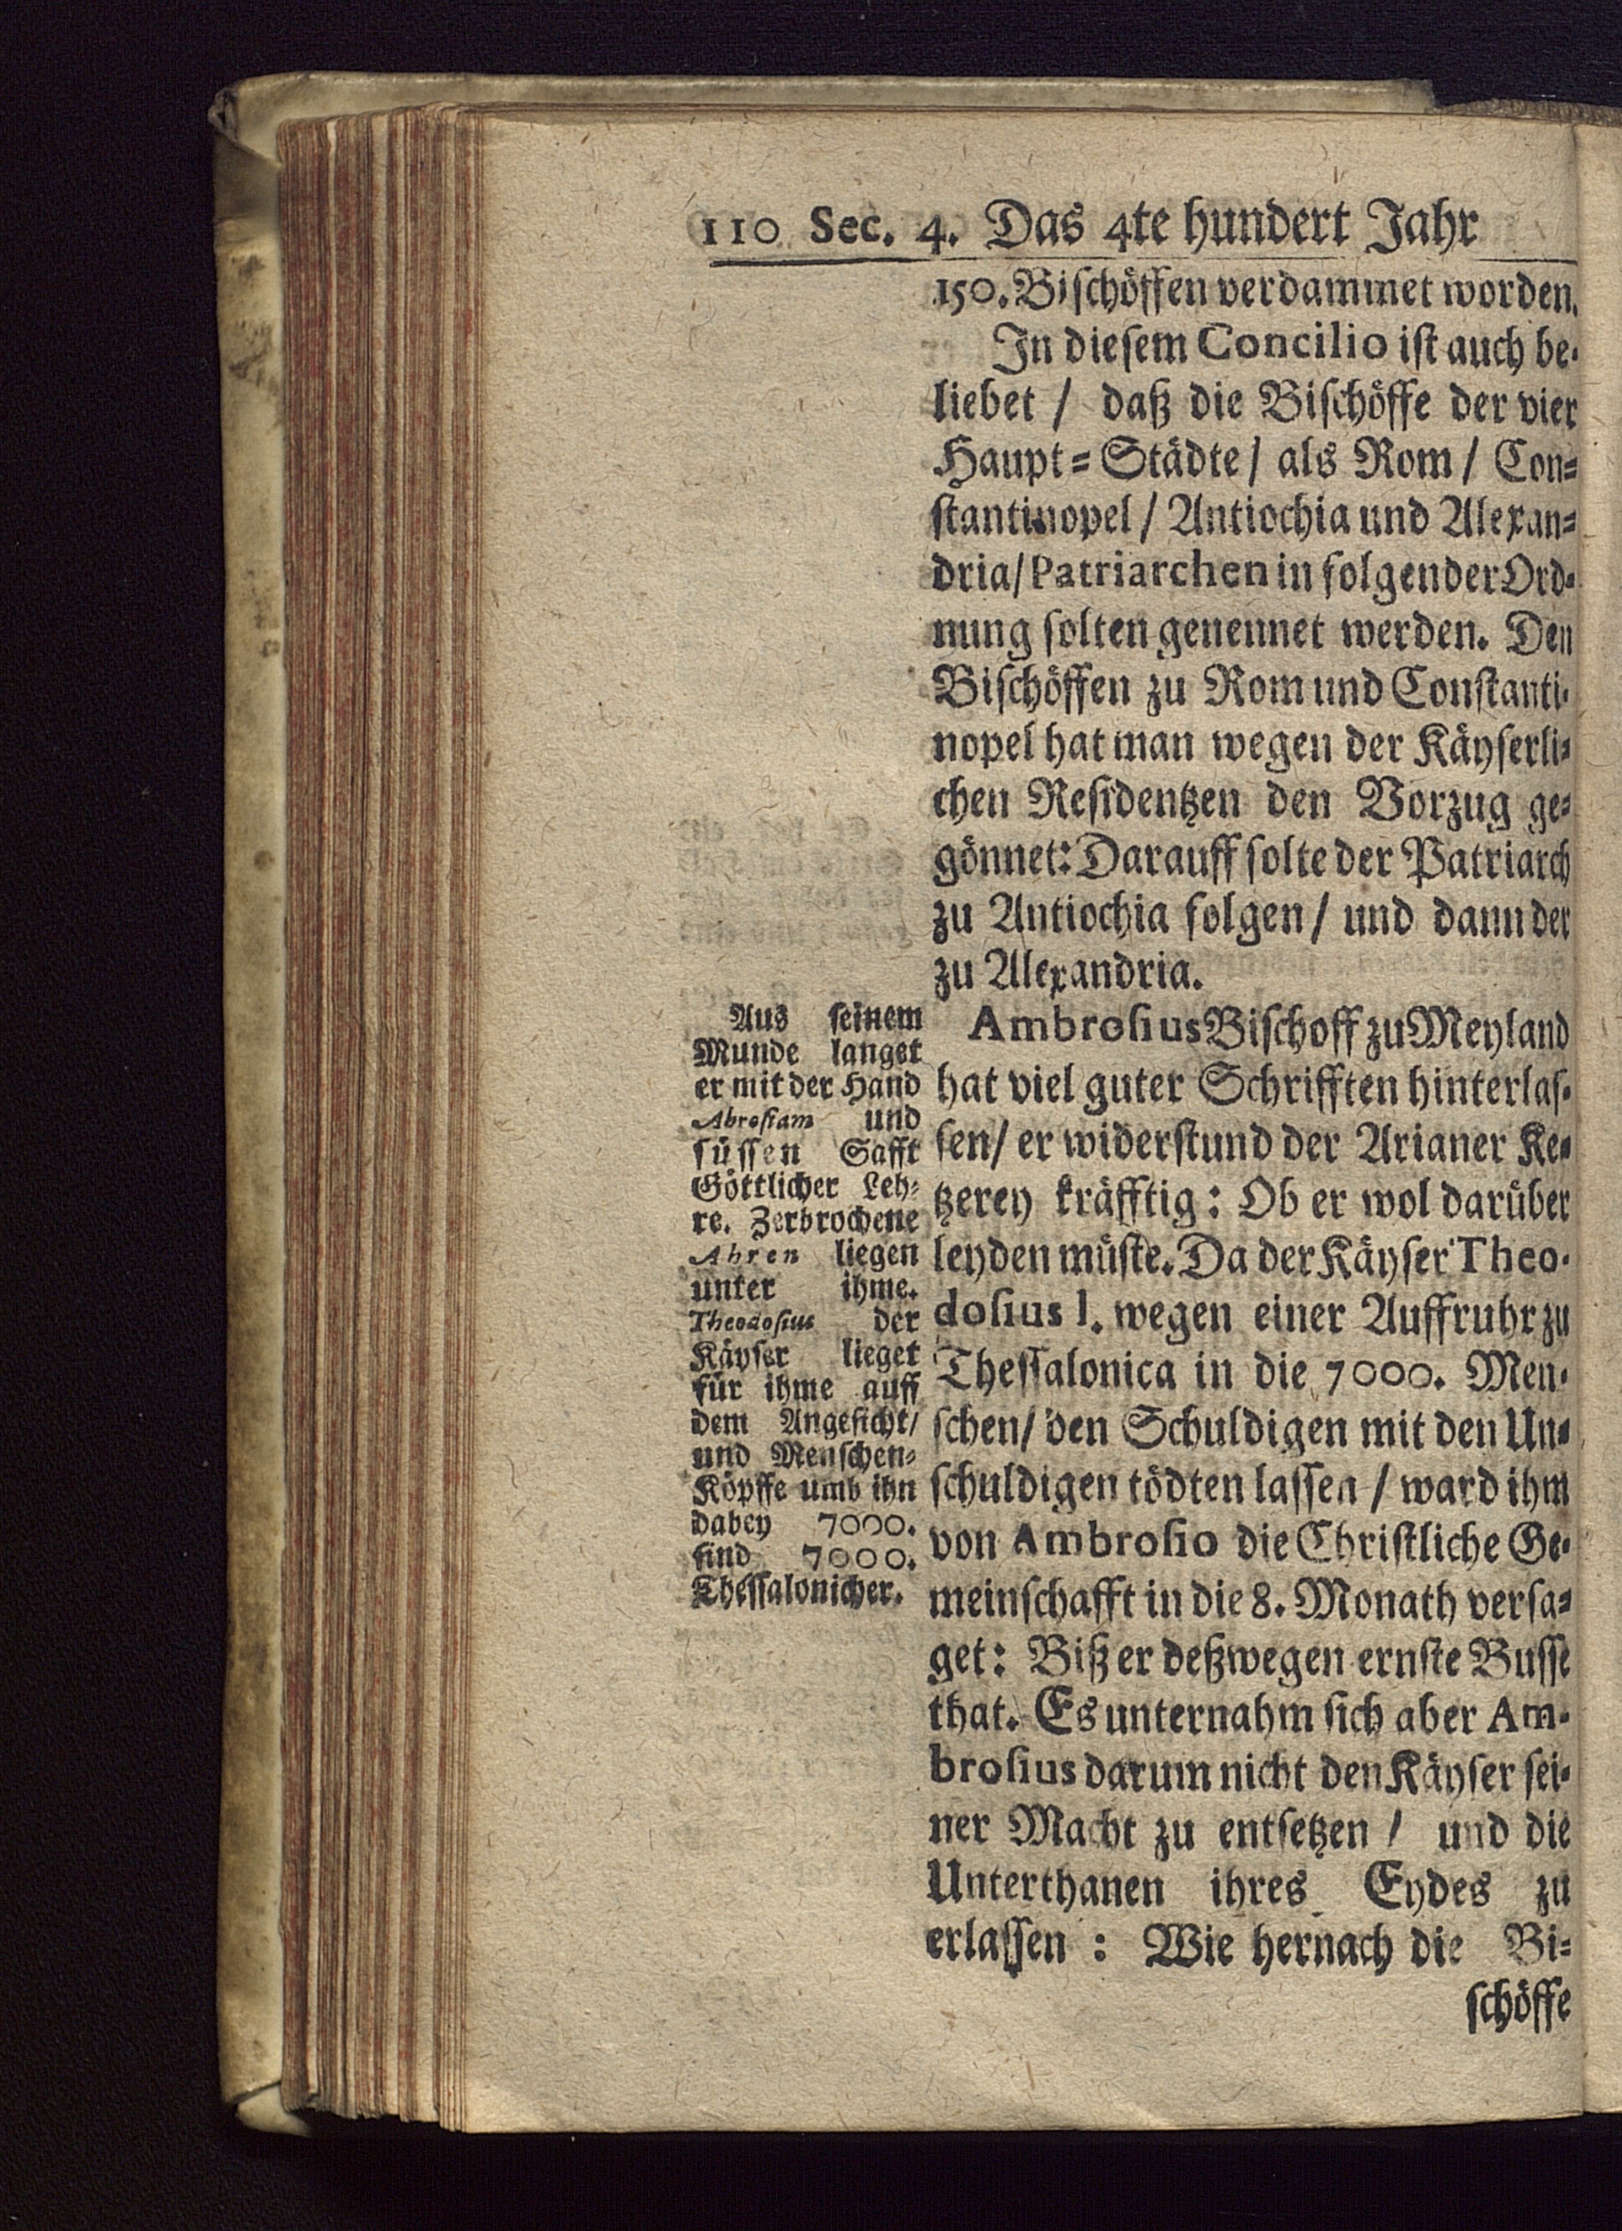 110 Sec. 4. Das 4te hundert Jahr
150. Bischöffen verdammet worden.
In diesem Concilio ist auch be-
liebet / daß die Bischöffe der vier
Haupt-Städte / als Rom / Con-
stantinopel / Antiochia und Alexan-
dria/ Patriarchen in folgender Ord-
nung solten genennet werden. Den
Bischöffen zu Rom und Constanti-
nopel hat man wegen der Käyserli-
chen Residentzen den Vorzug ge-
gönnet: Darauff solte der Patriarch
zu Antiochia folgen / und dann der
zu Alexandria.
Ambrosius Bischoff zu Meyland
hat viel guter Schrifften hinterlas-
sen/ er widerstund der Arianer Ke-
tzerey kräfftig: Ob er wol darüber
leyden müste. Da der Käyser Theo-
dosius I. wegen einer Auffruhr zu
Thessalonica in die 7000. Men-
schen/ den Schuldigen mit den Un-
schuldigen tödten lassen / ward ihm
von Ambrosio die Christliche Ge-
meinschafft in die 8. Monath versa-
get: Biß er deßwegen ernste Busse
that. Es unternahm sich aber Am-
brosius darum nicht den Käyser sei-
ner Macht zu entsetzen / und die
Unterthanen ihres Eydes zu
erlassen : Wie hernach die Bi-
schöffe
Aus seinem
Munde langet
er mit der Hand
Abrostam und
süssen Safft
Göttlicher Leh-
re. Zerbrochene
Ahren liegen
unter ihme.
Theodosius der
Käyser lieget
für ihme auff
dem Angesicht/
und Menschen-
Köpffe umb ihn
dabey 7000.
sind 7000.
Thessalonicher.